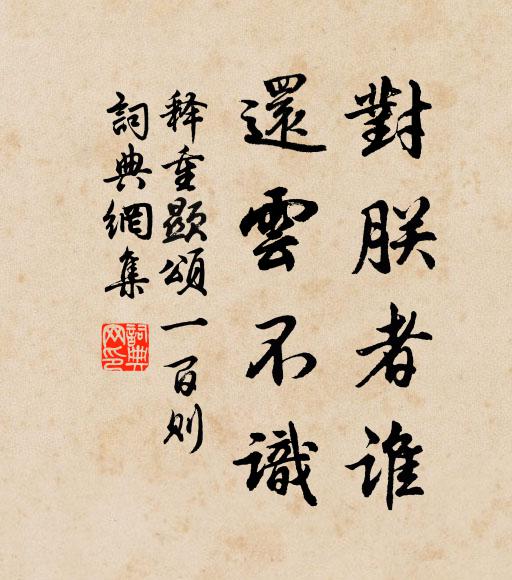 對朕者誰
還雲不識
释重顯頌一百则
詞典網集
詞典网印